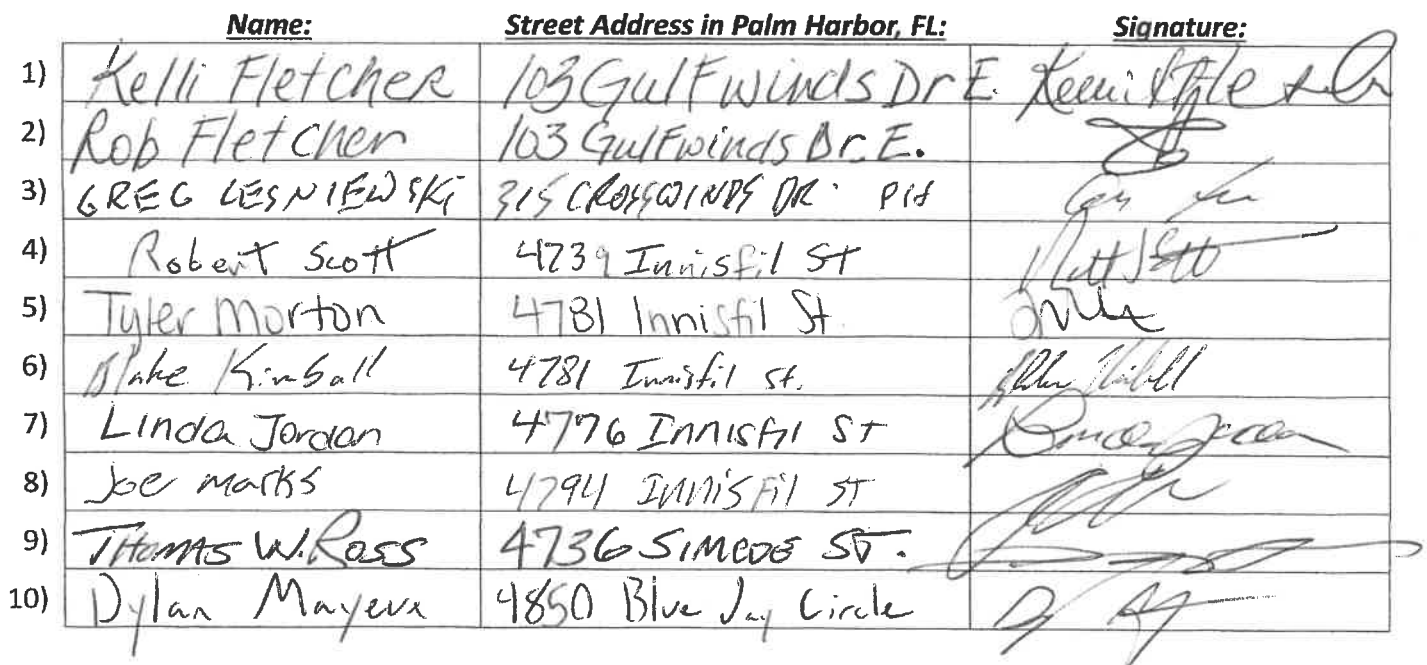 Name: Street Address in Palm Harbor, FL: Signature:
1) Kelli Fletcher 103 Gulfwinds Dr E.
2) Rob Fletcher 103 Gulfwinds Dr. E.
3) GREG LESNIEWSKI 315 CROSSWINDS DR. PH
4) Robert Scott 4739 Innisfil St
5) Tyler Morton 4781 Innisfil St.
6) Blake Kimball 4781 Innisfil St.
7) Linda Jordan 4776 Innisfil ST
8) Joe Marks 4794 Innisfil ST
9) THOMAS W. ROSS 4736 SIMCOE ST.
10) Dylan 4850 Blue Jay Circle